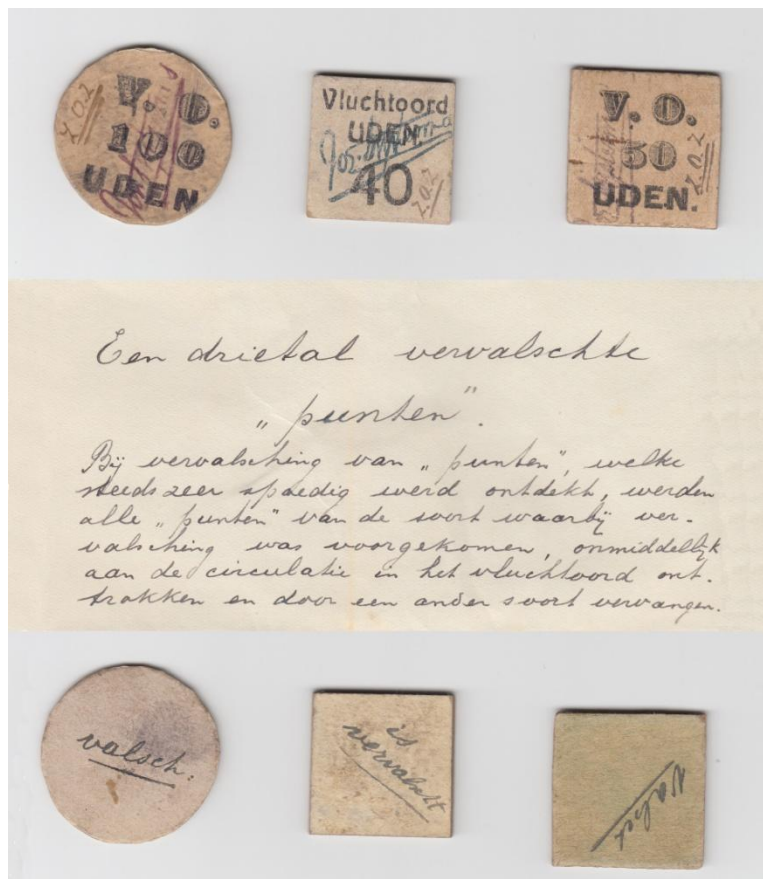 V. O.
100
UDEN
Z.O.Z
Vluchtoord
UDEN
40
Z.O.Z
V. O.
50
UDEN.
Z.O.Z
Een drietal vervalschte
„punten".
Bij vervalsching van „punten", welke
steeds zeer spoedig werd ontdekt, werden
alle „punten" van de soort waarbij ver-
valsching was voorgekomen, onmiddellijk
aan de circulatie in het vluchtoord ont-
trokken en door een ander soort vervangen.
valsch.
is
vervalscht
valsch